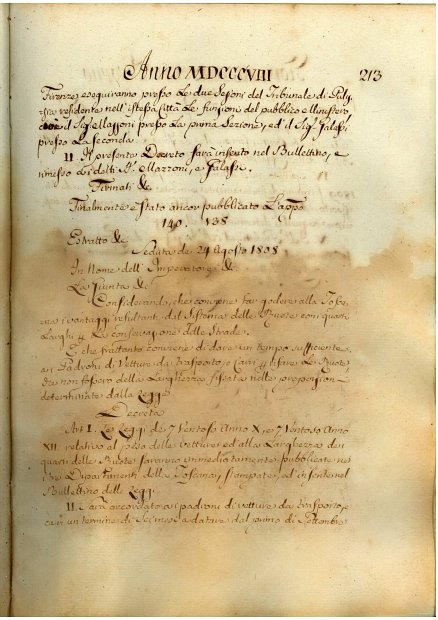 Anno MDCCCVIII 213
Firenze eseguiranno presso le due Sezioni del Tribunale di Puli-
zia residente nell'istessa Città le funzioni del pubblico Ministero
il Sig. Mazzoni presso la prima Sezione, ed il Sig. Falassi
presso la seconda.
II. Il presente Decreto sarà inserito nel Bullettino, e
rimesso ai detti SS. Mazzoni, e Falassi.
Firmati &c
Finalmente è stato ancor pubblicato l'app.
140. 138
Estratto &c
Seduta de 24 Agosto 1808
In Nome dell'Imperatore &c
La Giunta &c
Considerando, che conviene far godere alla Tosca-
na i vantaggi resultanti dal Sistema delle Ruote con quarti
Larghi per La conservazione delle Strade.
E che frattanto conviene di dare un tempo sufficiente
ai Padroni di Vetture da trasporto, o Carri per disfare le Ruote
che non fossero della Larghezza fissata nelle proporzioni
determinate dalla Legge
Decreta
Art I. Le Leggi de 7 Ventoso Anno X, e 7 Ventoso Anno
XII. relative al delle vetture, ed alla Larghezza dei
quarti delle Ruote saranno immediatamente pubblicate nei
tre Dipartimenti della Toscana, stampate, ed inserite nel
Bullettino delle Leggi.
II. Sarà accordato ai padroni di vetture da trasporto, e
carri un termine di Sei mesi a datare dal primo di Settembre